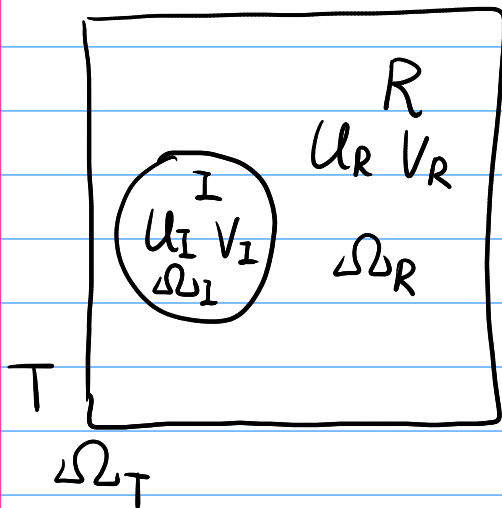 R
U_R V_R
I
U_I V_I
Ω_R
Ω_I
T
Ω_T